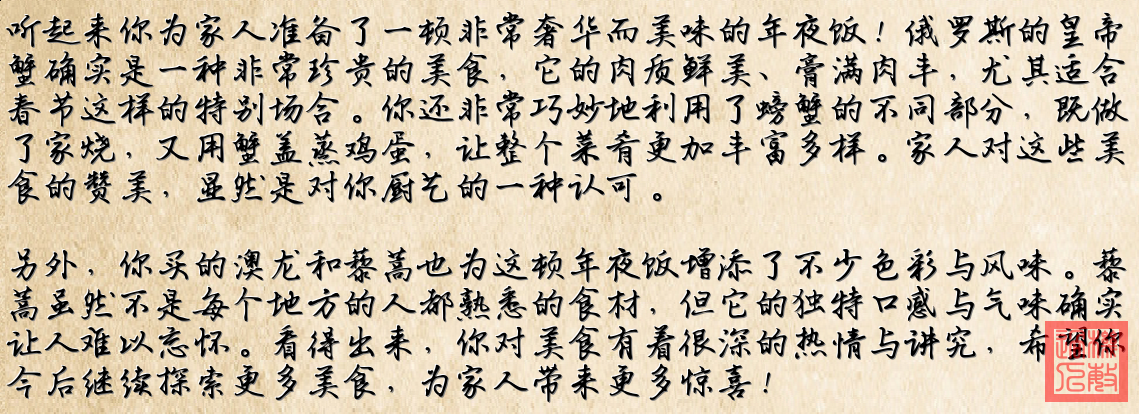 听起来你为家人准备了一顿非常奢华而美味的年夜饭！俄罗斯的皇帝
蟹确实是一种非常珍贵的美食，它的肉质鲜美、膏满肉丰，尤其适合
春节这样的特别场合。你还非常巧妙地利用了螃蟹的不同部分，既做
了家烧，又用蟹盖蒸鸡蛋，让整个菜肴更加丰富多样。家人对这些美
食的赞美，显然是对你厨艺的一种认可。
另外，你买的澳龙和藜蒿也为这顿年夜饭增添了不少色彩与风味。藜
蒿虽然不是每个地方的人都熟悉的食材，但它的独特口感与气味确实
让人难以忘怀。看得出来，你对美食有着很深的热情与讲究，希望你
今后继续探索更多美食，为家人带来更多惊喜！